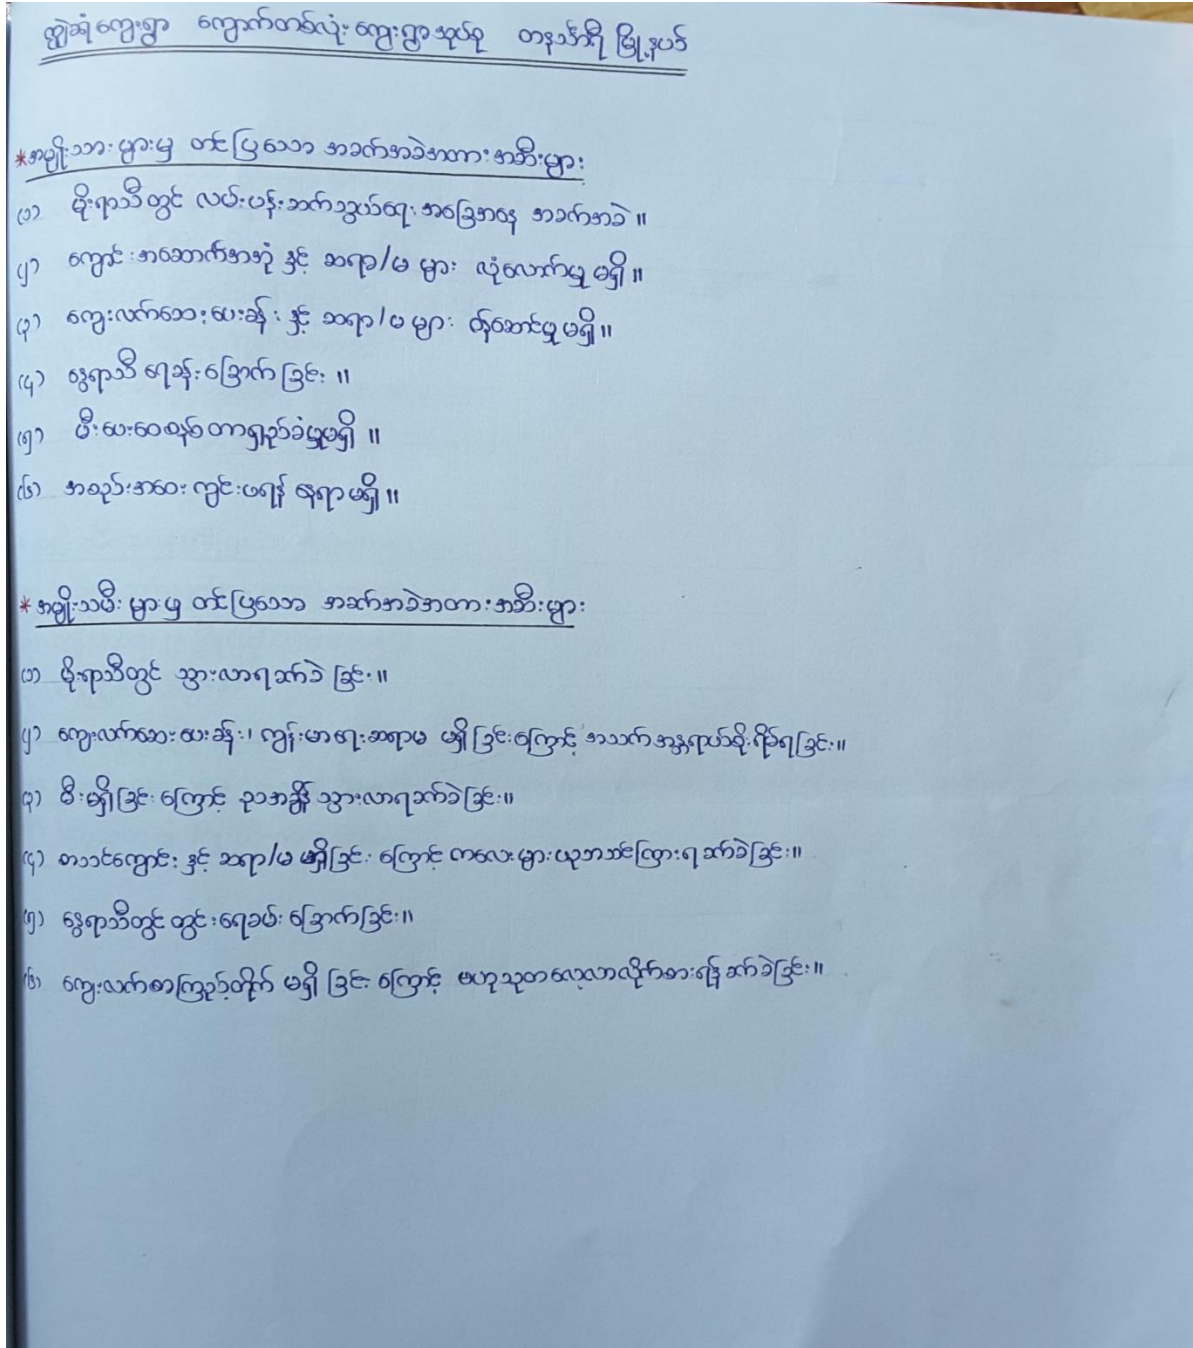 ကျွဲဆုံကျေးရွာ ကျောက်တစ်လုံးကျေးရွာအုပ်စု တနင်္သာရီမြို့နယ်
*အမျိုးသားများမှ တင်ပြသော အခက်အခဲအတားအဆီးများ
(၁) မိုးရာသီတွင် လမ်းပန်းဆက်သွယ်ရေး အခြေအနေ အခက်အခဲ။
(၂) ကျောင်းအဆောက်အအုံ နှင့် ဆရာ/မ များ လုံလောက်မှု မရှိ။
(၃) ကျေးလက်ဆေးပေးခန်း နှင့် ဆရာ/မ များ ဝန်ဆောင်မှုမရှိ။
(၄) နွေရာသီ ရေခန်းခြောက်ခြင်း ။
(၅) မီးပေးဝေစနစ်တာရှည်ခံမှုမရှိ ။
(၆) အစည်းအဝေး ကျင်းပရန် နေရာမရှိ။
*အမျိုးသမီးများမှ တင်ပြသော အခက်အခဲအတားအဆီးများ
(၁) မိုးရာသီတွင် သွားလာရခက်ခဲခြင်း။
(၂) ကျေးလက်ဆေးပေးခန်း၊ ကျန်းမာရေးဆရာမ မရှိခြင်းကြောင့် အသက်အန္တရာယ်စိုးရိမ်ရခြင်း။
(၃) မီးမရှိခြင်းကြောင့် ညအချိန် သွားလာရခက်ခဲခြင်း။
(၄) စာသင်ကျောင်း နှင့် ဆရာ/မ မရှိခြင်း ကြောင့် ကလေးများပညာသင်ကြားရ ခက်ခဲခြင်း။
(၅) နွေရာသီတွင် တွင်းရေခမ်းခြောက်ခြင်း။
(၆) ကျေးလက်စာကြည့်တိုက် မရှိခြင်း ကြောင့် ဗဟုသုတလေ့လာလိုက်စားရန်ခက်ခဲခြင်း။